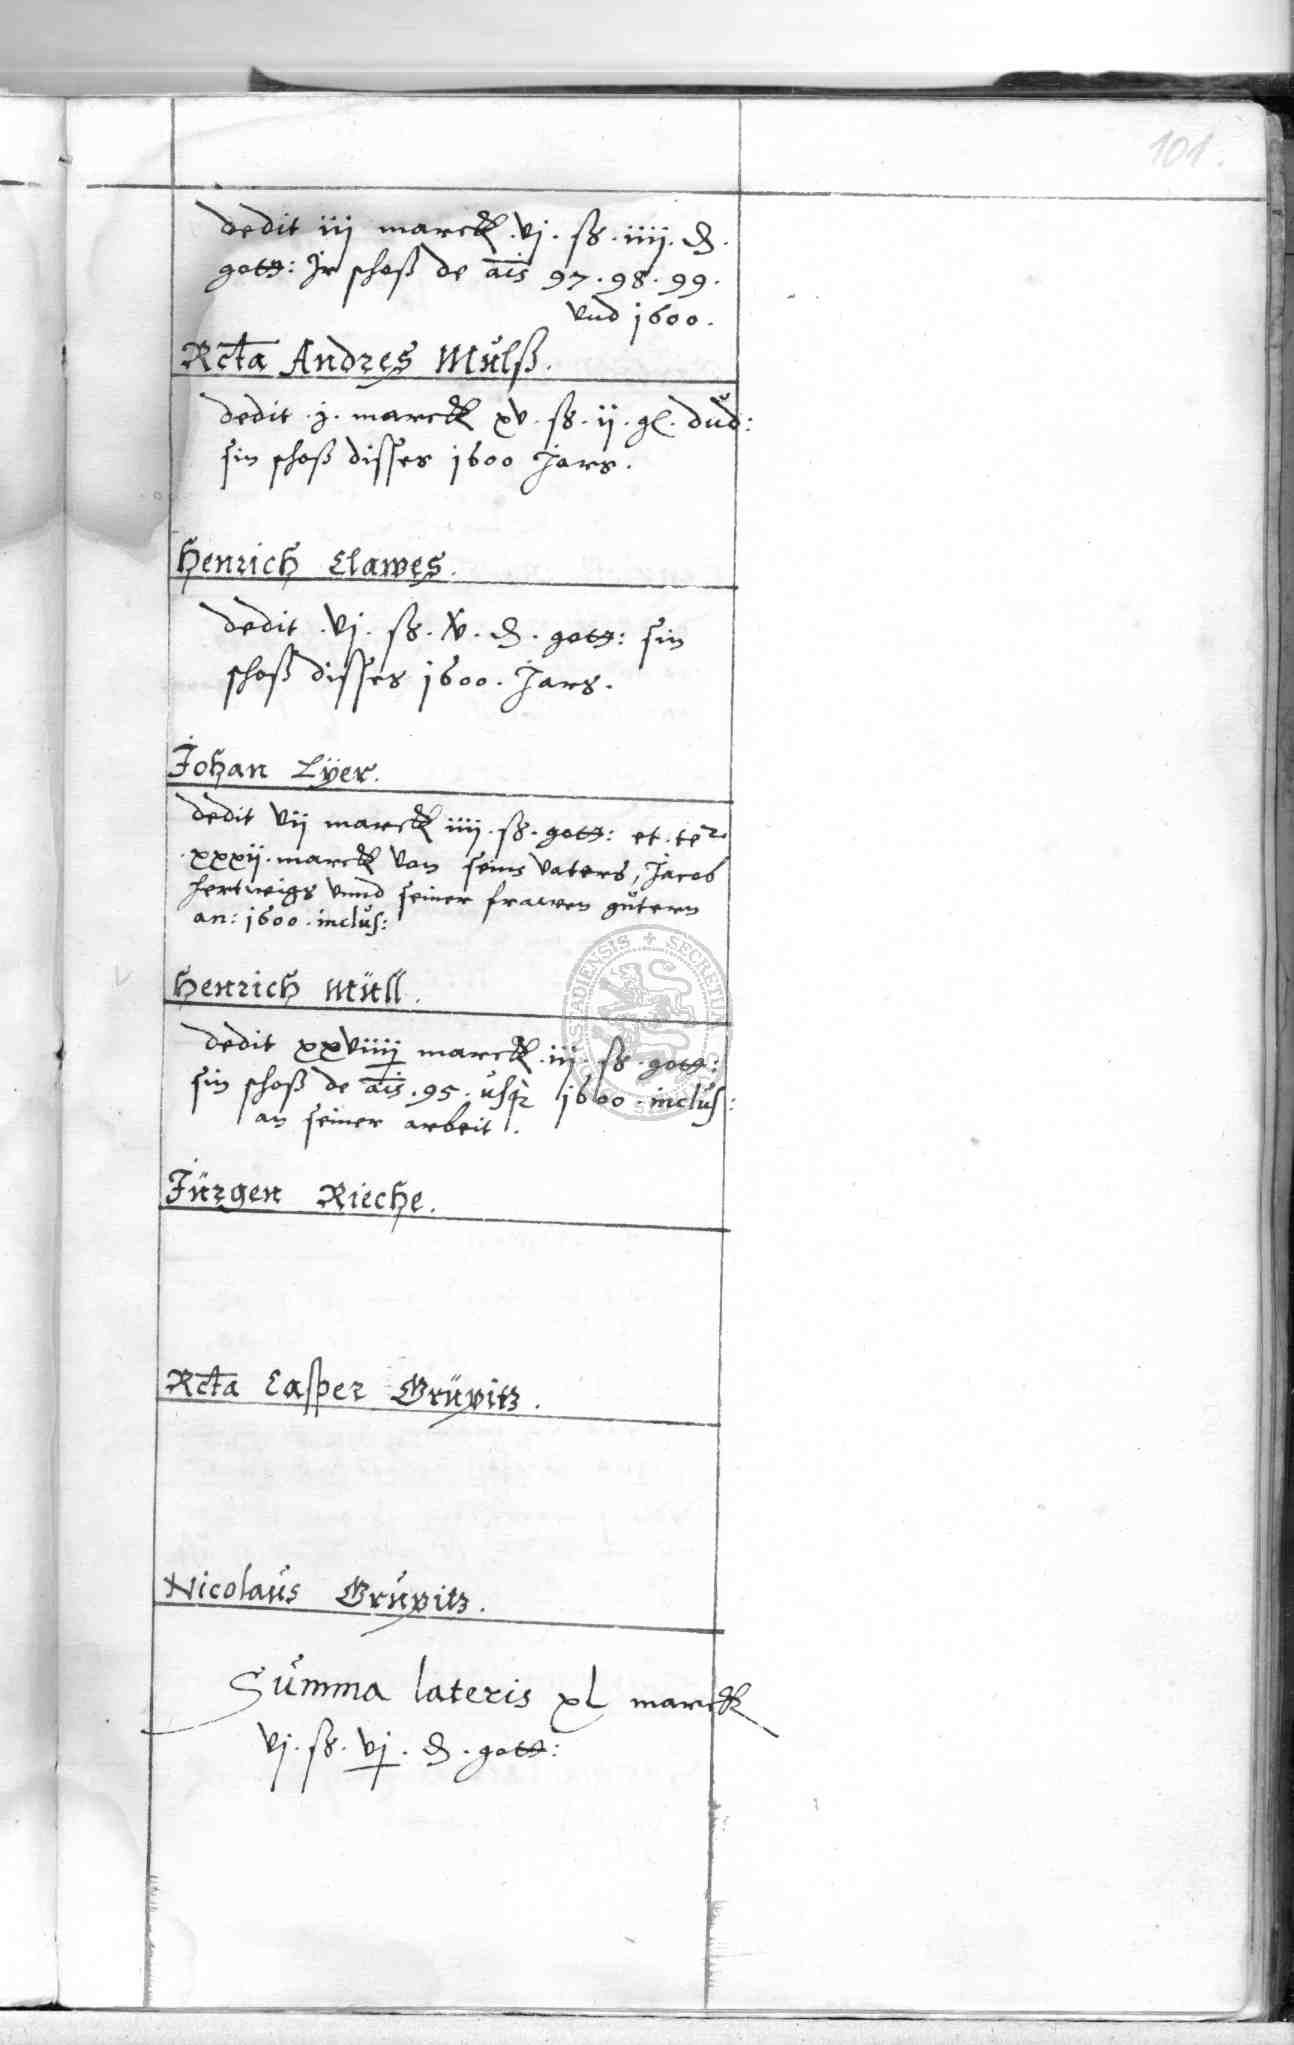 101.
dedit iij marck vj. ß. iiij. ₰.
gott: Jr schoß de ais 97. 98. 99.
vnd 1600.
Rcta Andres Mulß.
dedit .j. marck xv. ß. ij. gl. dud:
sin schoß disses 1600 Jars.
Henrich Clawes.
dedit .vj. ß. xv. ₰. gott: sin
schoß disses 1600. Jars.
Johan Lÿer.
dedit vij marck iiij. ß. gott: et.
xxxij. marck von seins vaters, Jacob
hertwigs vnnd seiner frawen gutern
an: 1600. inclus:
Henrich Müll.
dedit xxviiij marck .iij. ß. gott:
sin schoß de ais. 95. usq 1600. inclus:
an seiner arbeit.
Jürgen Rieche.
Rcta Casper Grüvitz.
Nicolaus Gruvitz.
Summa lateris xl marck
vj. ß. vj. ₰. gott:
STADIENSIS + SECRETUM